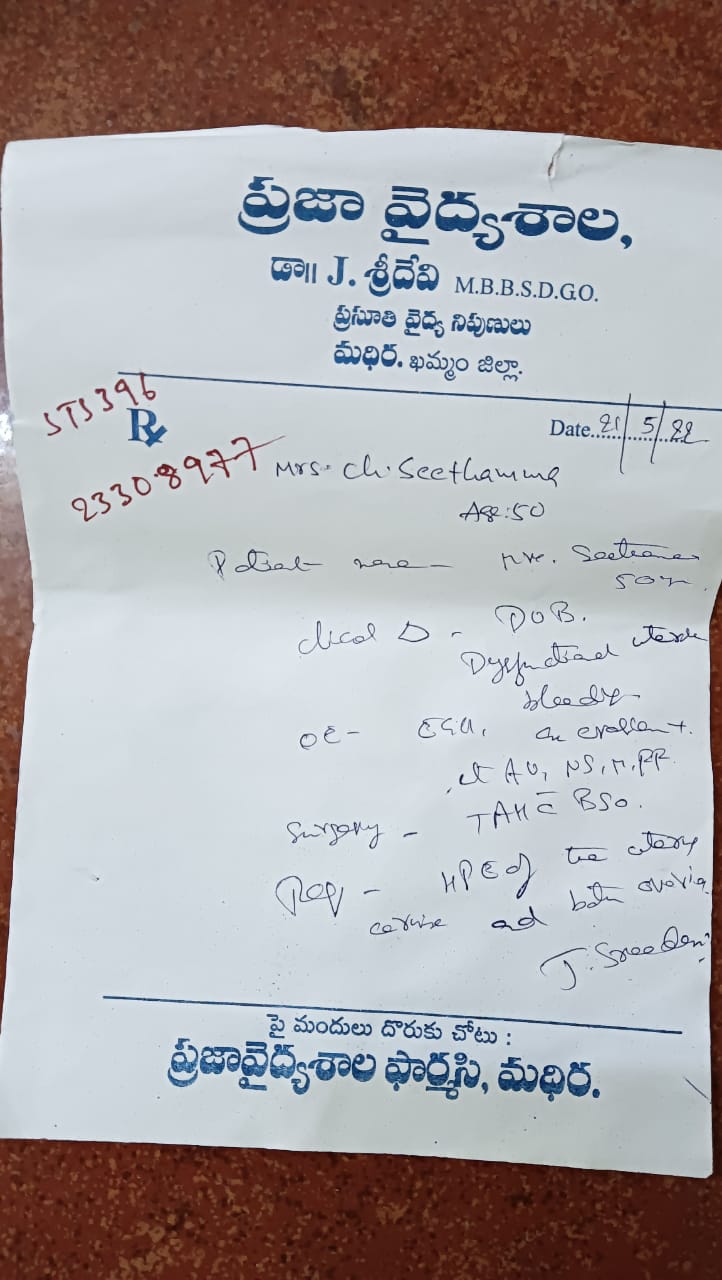 ప్రజా వైద్యశాల,
డా॥ J. శ్రీదేవి M.B.B.S.D.G.O.
ప్రసూతి వైద్య నిపుణులు
మధిర. ఖమ్మం జిల్లా.
STS396
Rx
Date..21/5/22
23308977
Mrs. Ch. Seethamma
Age:50
Patient name - Mrs. Seethamma
50yr.
Clinical D - DUB.
Dysfunctional uterine
bleeding
OE-
Surgery - TAH c̄ BSO.
Req - HPE of the uterus
cervix and both ovaries
J. Sreedevi
పై మందులు దొరుకు చోటు :
ప్రజావైద్యశాల ఫార్మసి, మధిర.